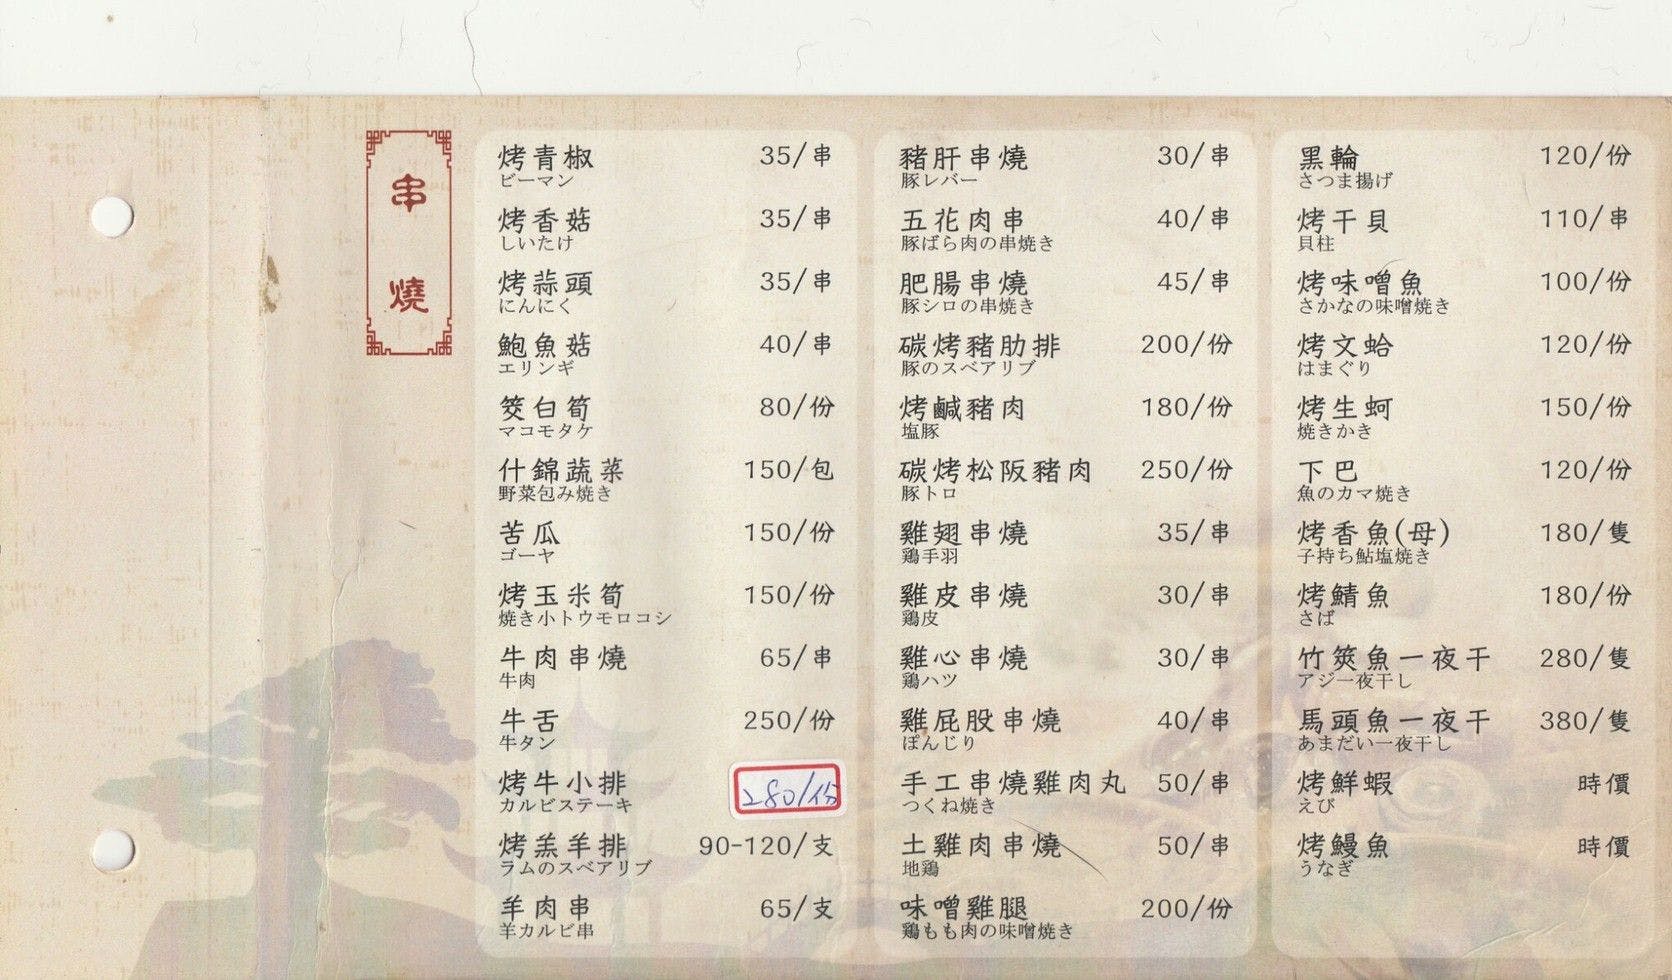 串燒
烤青椒 35/串
ピーマン
烤香菇 35/串
しいたけ
烤蒜頭 35/串
にんにく
鮑魚菇 40/串
エリンギ
筊白筍 80/份
マコモタケ
什錦蔬菜 150/包
野菜包み焼き
苦瓜 150/份
ゴーヤ
烤玉米筍 150/份
焼き小トウモロコシ
牛肉串燒 65/串
牛肉
牛舌 250/份
牛タン
烤牛小排 280/份
カルビステーキ
烤羔羊排 90-120/支
ラムのスペアリブ
羊肉串 65/支
羊カルビ串
豬肝串燒 30/串
豚レバー
五花肉串 40/串
豚ばら肉の串焼き
肥腸串燒 45/串
豚シロの串焼き
碳烤豬肋排 200/份
豚のスペアリブ
烤鹹豬肉 180/份
塩豚
碳烤松阪豬肉 250/份
豚トロ
雞翅串燒 35/串
鶏手羽
雞皮串燒 30/串
鶏皮
雞心串燒 30/串
鶏ハツ
雞屁股串燒 40/串
ぽんじり
手工串燒雞肉丸 50/串
つくね焼き
土雞肉串燒 50/串
地鶏
味噌雞腿 200/份
鶏もも肉の味噌焼き
黑輪 120/份
さつま揚げ
烤干貝 110/串
貝柱
烤味噌魚 100/份
さかなの味噌焼き
烤文蛤 120/份
はまぐり
烤生蚵 150/份
焼きかき
下巴 120/份
魚のカマ焼き
烤香魚(母) 180/隻
子持ち鮎塩焼き
烤鯖魚 180/份
さば
竹筴魚一夜干 280/隻
アジ一夜干し
馬頭魚一夜干 380/隻
あまだい一夜干し
烤鮮蝦 時價
えび
烤鰻魚 時價
うなぎ